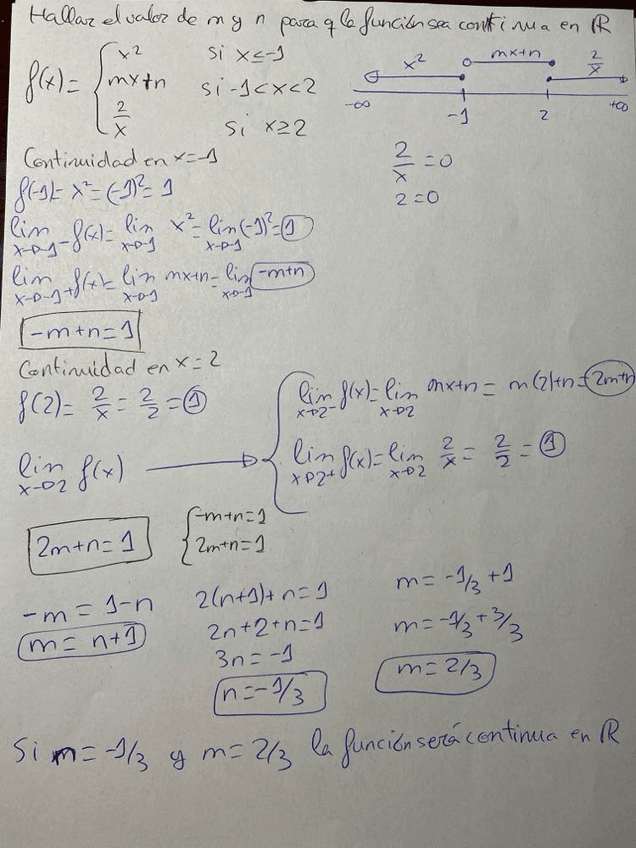 Hallar el valor de m y n para q la función sea continua en ℝ
f(x)= { x² si x≤-1
mx+n si -1<x<2
2/x si x≥2
x² mx+n 2/x
-∞ -1 2 +∞
Continuidad en x=-1
f(-1)= x²=(-1)²=1
lim x→-1⁻ f(x)= lim x→-1 x²= lim x→-1 (-1)²=1
lim x→-1⁺ f(x)= lim x→-1 mx+n= lim x→-1 -m+n
-m+n=1
2/x =0
2=0
Continuidad en x=2
f(2)= 2/x = 2/2 =1
lim x→2 f(x)
lim x→2⁻ f(x)= lim x→2 mx+n = m(2)+n=2m+n
lim x→2⁺ f(x)= lim x→2 2/x = 2/2 = 1
2m+n=1
{ -m+n=1
2m+n=1
-m = 1-n
m= n+1
2(n+1)+n=1
2n+2+n=1
3n=-1
n=-1/3
m= -1/3 +1
m= -1/3 + 3/3
m= 2/3
Si n= -1/3 y m= 2/3 la función será continua en ℝ